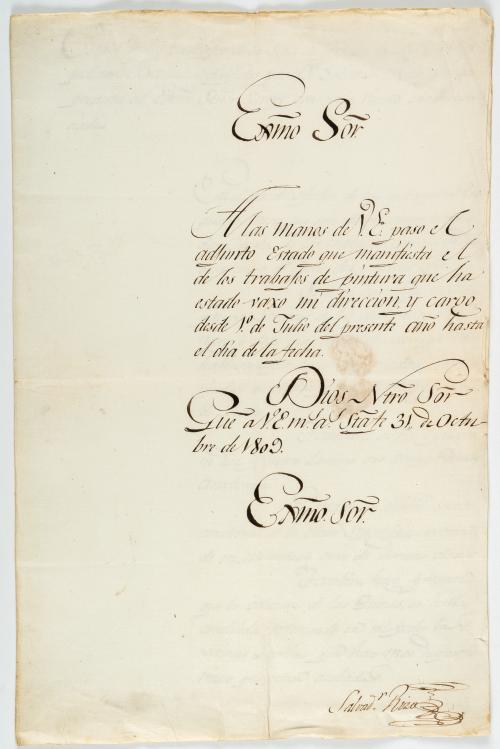 Exmõ Sõr.
A las manos de V.E. paso el
adjunto Estado que manifiesta el
de los trabajos de pintura que ha
estado vaxo mi direccion, y cargo
desde 1º. de Julio del presente año hasta
el dia de la fecha.
Dios Ntrõ Sõr
Gũe a V.E. m.s a.s Stafe 31,, de Octu-
bre de 1809.
Exmõ. Sõr.
Salvad.r Rizo